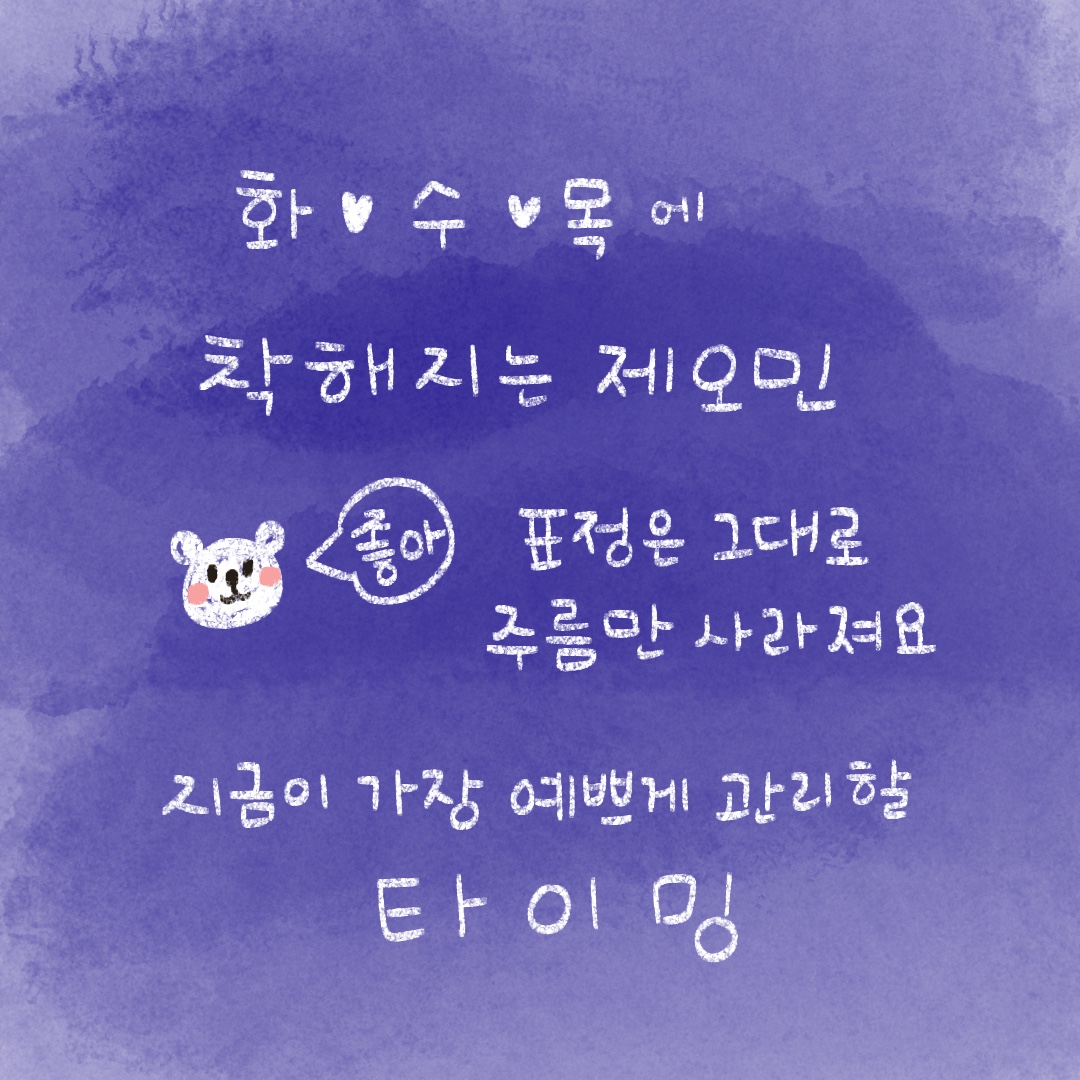 화♥수♥목에
착해지는 제오민
좋아
표정은 그대로
주름만 사라져요
지금이 가장 예쁘게 관리할
타이밍